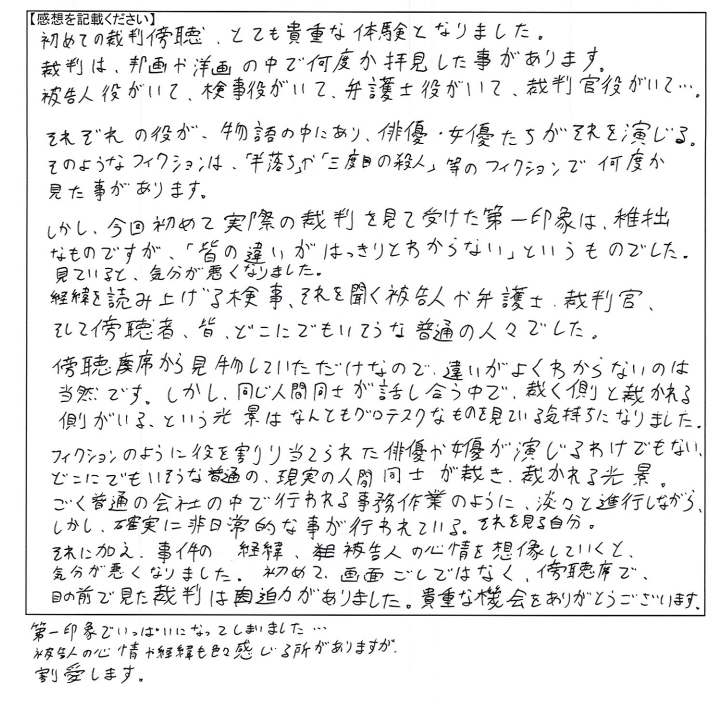 【感想を記載ください】
初めての裁判傍聴、とても貴重な体験となりました。
裁判は、邦画や洋画の中で何度か拝見した事があります。
被告人役がいて、検事役がいて、弁護士役がいて、裁判官役がいて…。
それぞれの役が、物語の中にあり、俳優・女優たちがそれを演じる。
そのようなフィクションは、「半落ち」や「三度目の殺人」等のフィクションで何度か
見た事があります。
しかし、今回初めて実際の裁判を見て受けた第一印象は、稚拙
なものですが、「皆の違いがはっきりとわからない」というものでした。
見ていると、気分が悪くなりました。
経緯を読み上げる検事、それを聞く被告人や弁護士、裁判官、
そして傍聴者、皆、どこにでもいそうな普通の人々でした。
傍聴席から見物していただけなので、違いがよくわからないのは
当然です。しかし、同じ人間同士が話し合う中で、裁く側と裁かれる
側がいる、という光景はなんともグロテスクなものを見ている気持ちになりました。
フィクションのように役を割り当てられた俳優や女優が演じるわけでもない、
どこにでもいそうな普通の、現実の人間同士が裁き、裁かれる光景。
ごく普通の会社の中で行われる事務作業のように、淡々と進行しながら、
しかし、確実に非日常的な事が行われている。それを見る自分。
それに加え、事件の経緯、被告人の心情を想像していくと、
気分が悪くなりました。初めて、画面ごしではなく、傍聴席で、
目の前で見た裁判は迫力がありました。貴重な機会をありがとうございます。
第一印象でいっぱいになってしまいました…
被告人の心情や経緯も色々感じる所がありますが、
割愛します。